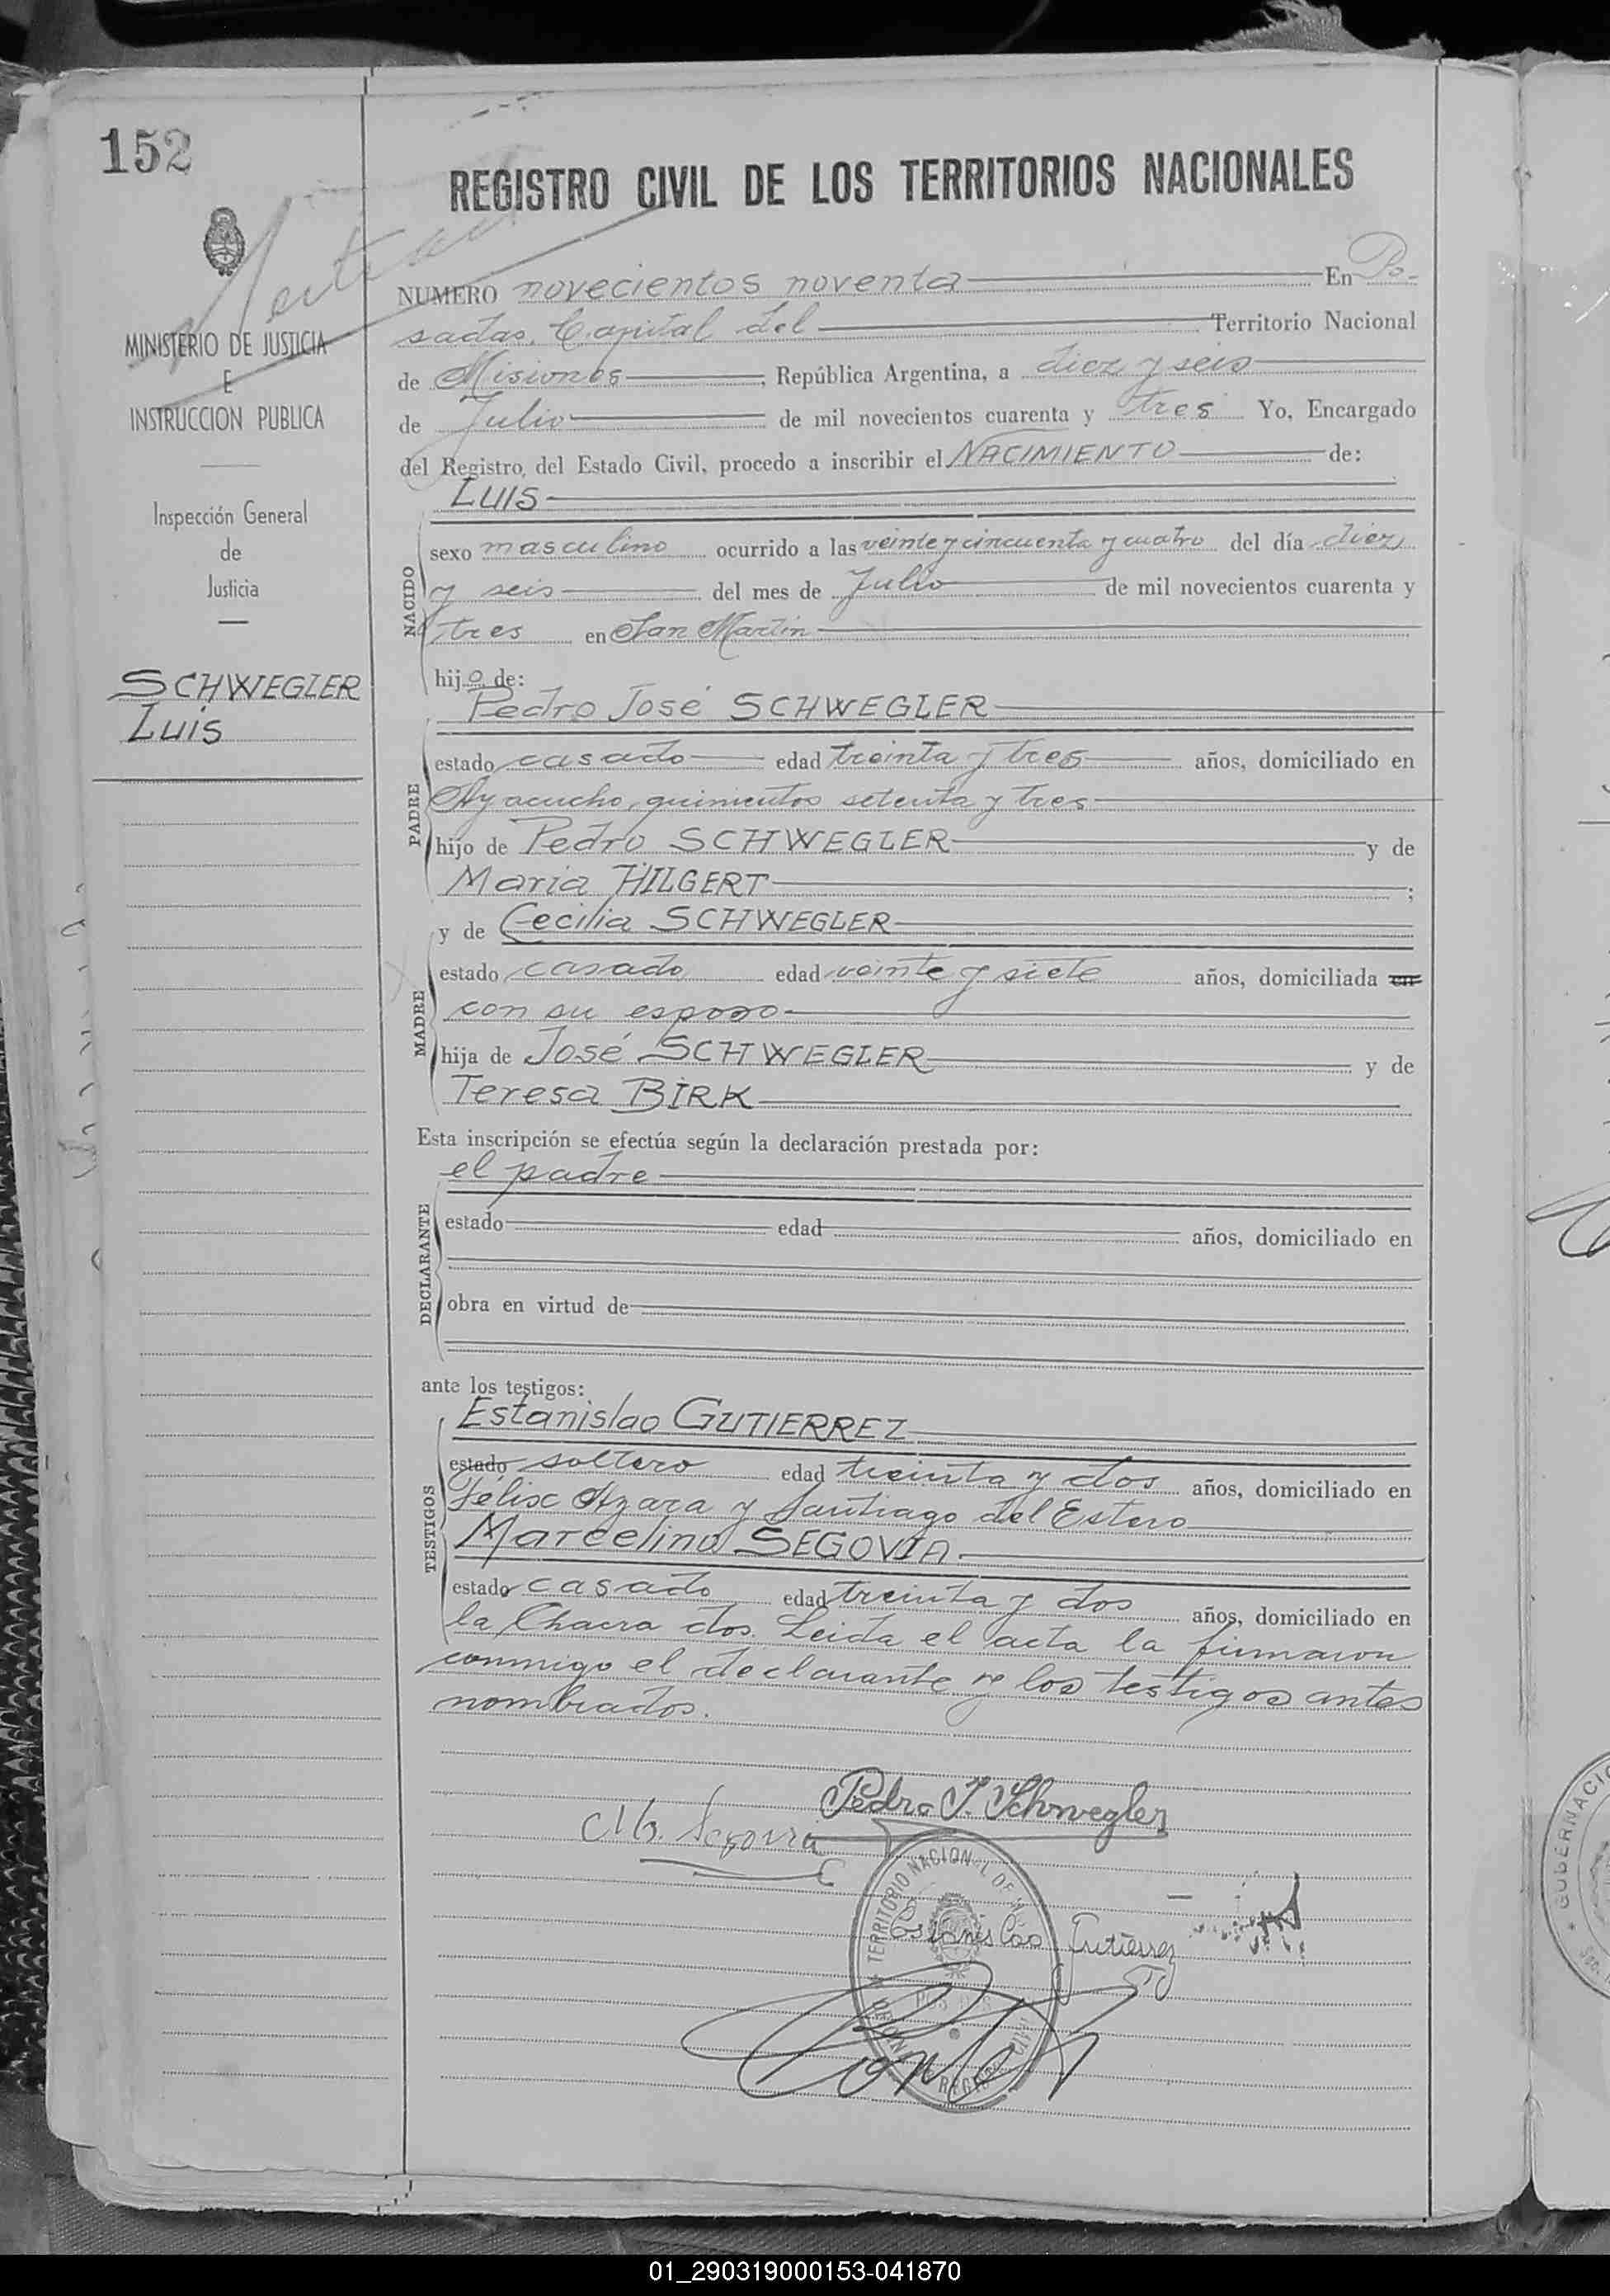 152
REGISTRO CIVIL DE LOS TERRITORIOS NACIONALES
MINISTERIO DE JUSTICIA
E
INSTRUCCION PUBLICA
Inspección General
de
Justicia
SCHWEGLER
Luis
NUMERO novecientos noventa En Po-
sadas, Capital del Territorio Nacional
de Misiones, República Argentina, a diez y seis
de Julio de mil novecientos cuarenta y tres Yo, Encargado
del Registro del Estado Civil, procedo a inscribir el NACIMIENTO de:
LUIS
NACIDO
sexo masculino ocurrido a las veinte y cincuenta y cuatro del día diez
y seis del mes de Julio de mil novecientos cuarenta y
tres en San Martín
hijo de:
Pedro José SCHWEGLER
PADRE
estado casado edad treinta y tres años, domiciliado en
Ayacucho, quinientos setenta y tres
hijo de Pedro SCHWEGLER y de
Maria HILGERT;
y de Cecilia SCHWEGLER
MADRE
estado casado edad veinte y siete años, domiciliada en
con su esposo
hija de José SCHWEGLER y de
Teresa BIRK
Esta inscripción se efectúa según la declaración prestada por:
el padre
DECLARANTE
estado edad años, domiciliado en
obra en virtud de
ante los testigos:
Estanislao GUTIERREZ
TESTIGOS
estado soltero edad treinta y dos años, domiciliado en
Félix Azara y Santiago del Estero
Marcelino SEGOVIA
estado casado edad treinta y dos años, domiciliado en
la Chacra dos. Leida el acta la firmaron
conmigo el declarante y los testigos antes
nombrados.
Pedro J. Schwegler
M. Segovia
TERRITORIO NACIONAL DE
Estanislao Gutierrez
GOBERNACIO
01_290319000153-041870